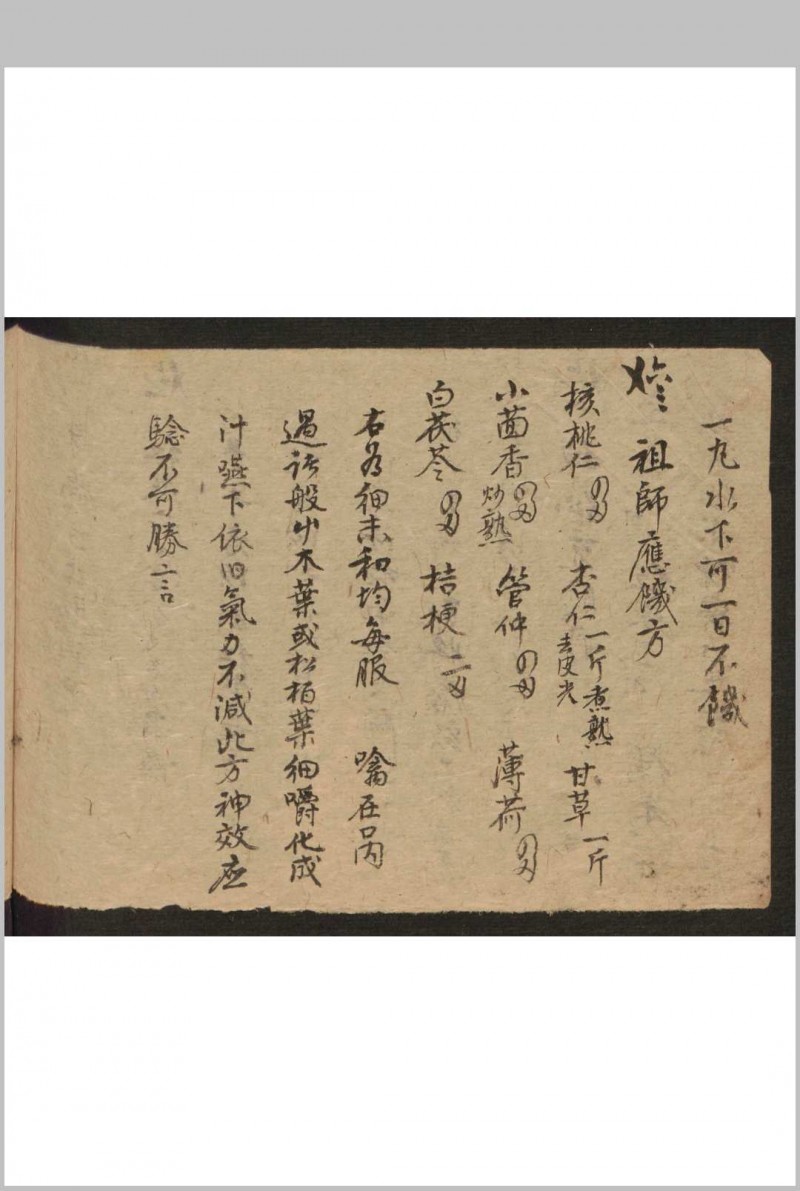 一丸水下可一日不饑
祖師應饑方
核桃仁 四两 杏仁 一斤煮熟去皮尖 甘草 一斤
小茴香 四两炒熟 管仲 四两 薄荷 四两
白茯苓 四两 桔梗 二两
右為細末和均每服 噙在口內
遇诸般草木葉或松栢葉細嚼化成
汁嚥下依旧氣力不減此方神效应
驗不可勝言